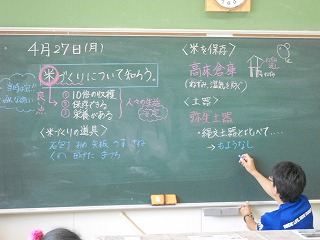 4月27日(月)
米づくりについて知ろう。
良い点
① 10倍の収穫
② 保存できる
③ 栄養がある
人々の生活
安定
〈米づくりの道具〉
石包丁 すき
くわ 田げた
〈米を保存〉
高床倉庫
(ねずみ、湿気を防ぐ)
〈土器〉
弥生土器
・縄文土器とくらべて....
→もようなし